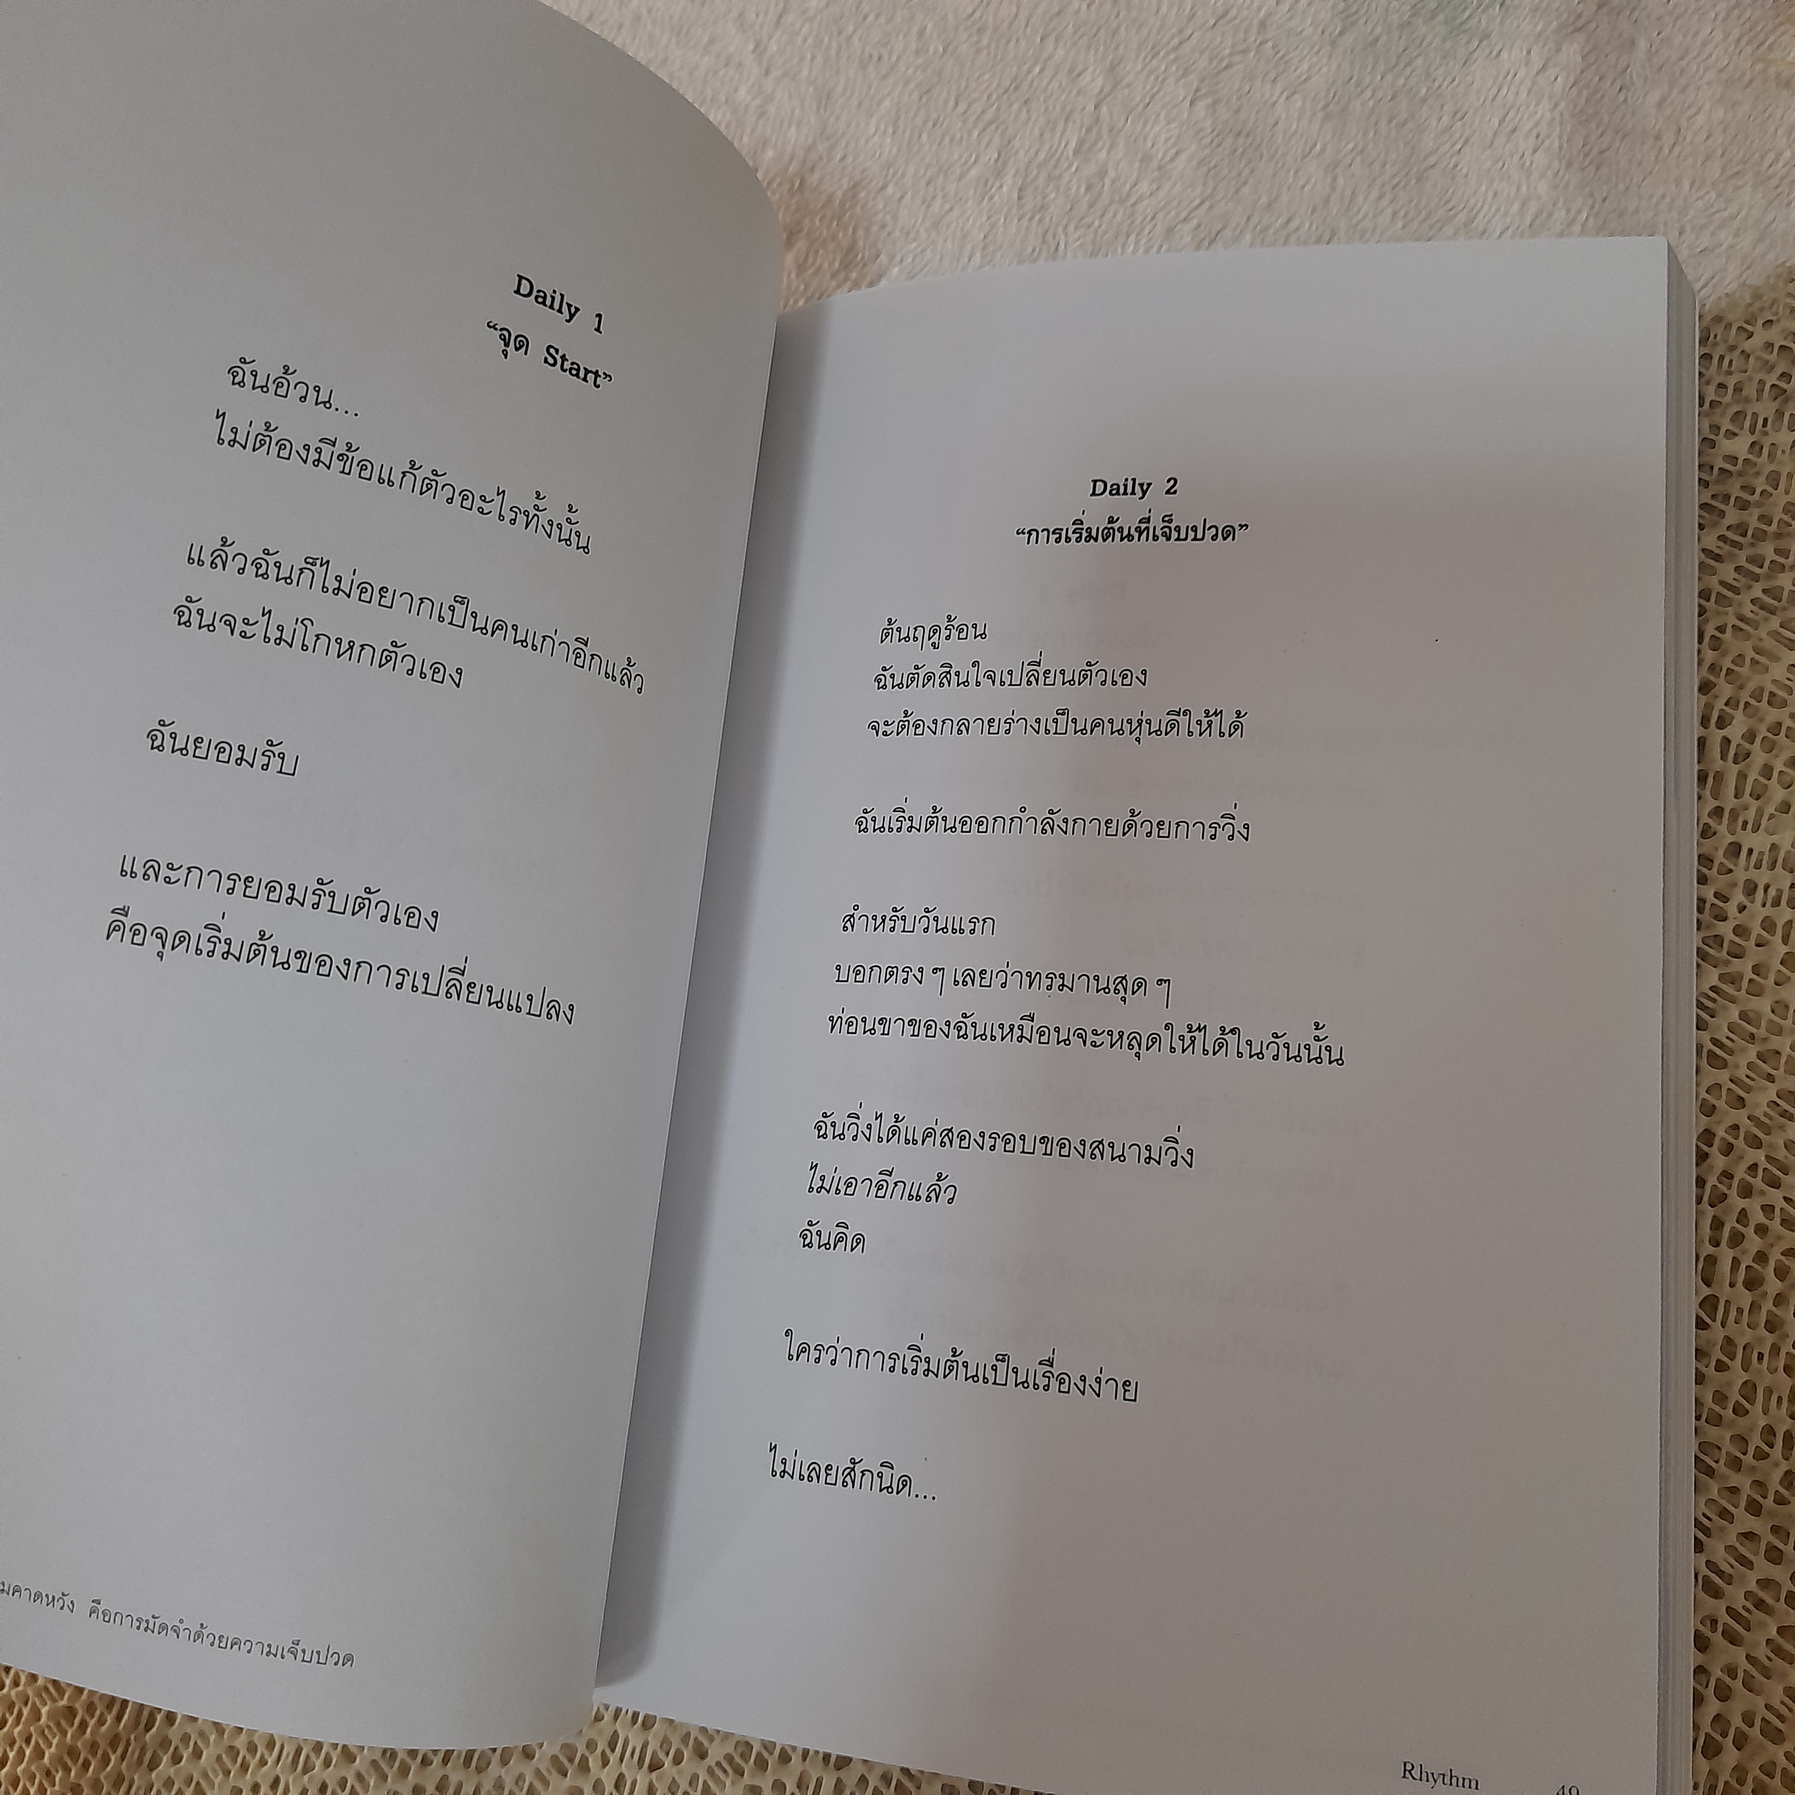 Daily 1
“จุด Start”
ฉันอ้วน...
ไม่ต้องมีข้อแก้ตัวอะไรทั้งนั้น
แล้วฉันก็ไม่อยากเป็นคนเก่าอีกแล้ว
ฉันจะไม่โกหกตัวเอง
ฉันยอมรับ
และการยอมรับตัวเอง
คือจุดเริ่มต้นของการเปลี่ยนแปลง
คาดหวัง คือการมัดจำด้วยความเจ็บปวด
Daily 2
“การเริ่มต้นที่เจ็บปวด”
ต้นฤดูร้อน
ฉันตัดสินใจเปลี่ยนตัวเอง
จะต้องกลายร่างเป็นคนหุ่นดีให้ได้
ฉันเริ่มต้นออกกำลังกายด้วยการวิ่ง
สำหรับวันแรก
บอกตรง ๆ เลยว่าทรมานสุด ๆ
ท่อนขาของฉันเหมือนจะหลุดให้ได้ในวันนั้น
ฉันวิ่งได้แค่สองรอบของสนามวิ่ง
ไม่เอาอีกแล้ว
ฉันคิด
ใครว่าการเริ่มต้นเป็นเรื่องง่าย
ไม่เลยสักนิด...
Rhythm